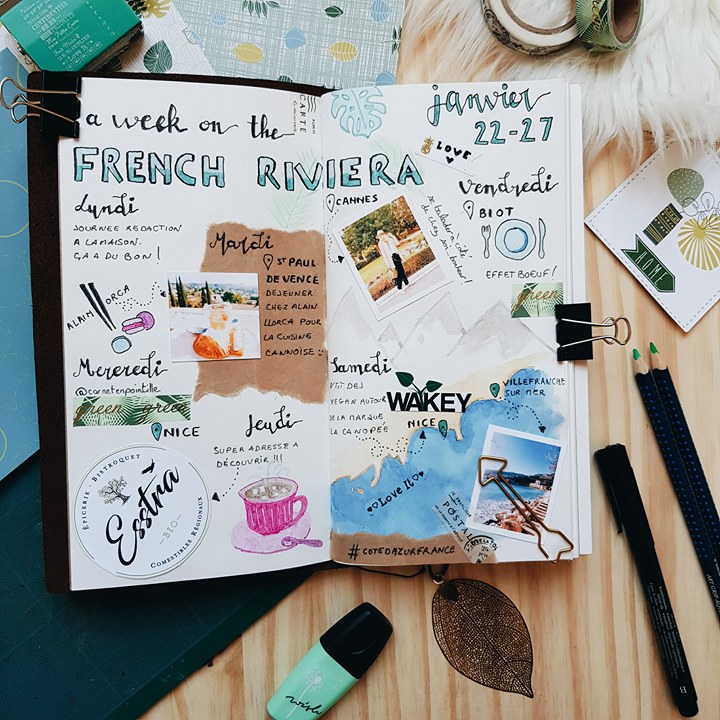 a week on the
FRENCH RIVIERA
CARTE
janvier
22-27
LOVE
Lundi
JOURNEE REDACTION
A LA MAISON.
CA A DU BON!
ALAIN LLORCA
Mardi
ST PAUL
DE VENCE
DEJEUNER
CHEZ ALAIN
LLORCA POUR
LA CUISINE
CANNOISE
Mercredi
@carnetenpointille
green green
NICE
ÉPICERIE - BISTROQUET
Esstrà
-BIO-
COMESTIBLES RÉGIONAUX
Jeudi
SUPER ADRESSE A
DÉCOUVRIR !!!
CANNES
se balader à côté
de chez son
Vendredi
BIOT
EFFET BOEUF!
green
Samedi
P'TIT DEJ
VEGAN AUTOUR
DE LA MARQUE
LA CANOPÉE
WAKEY
NICE
VILLEFRANCHE
SUR MER
Love It
POSTAL
#COTEDAZURFRANCE
HOME
wish